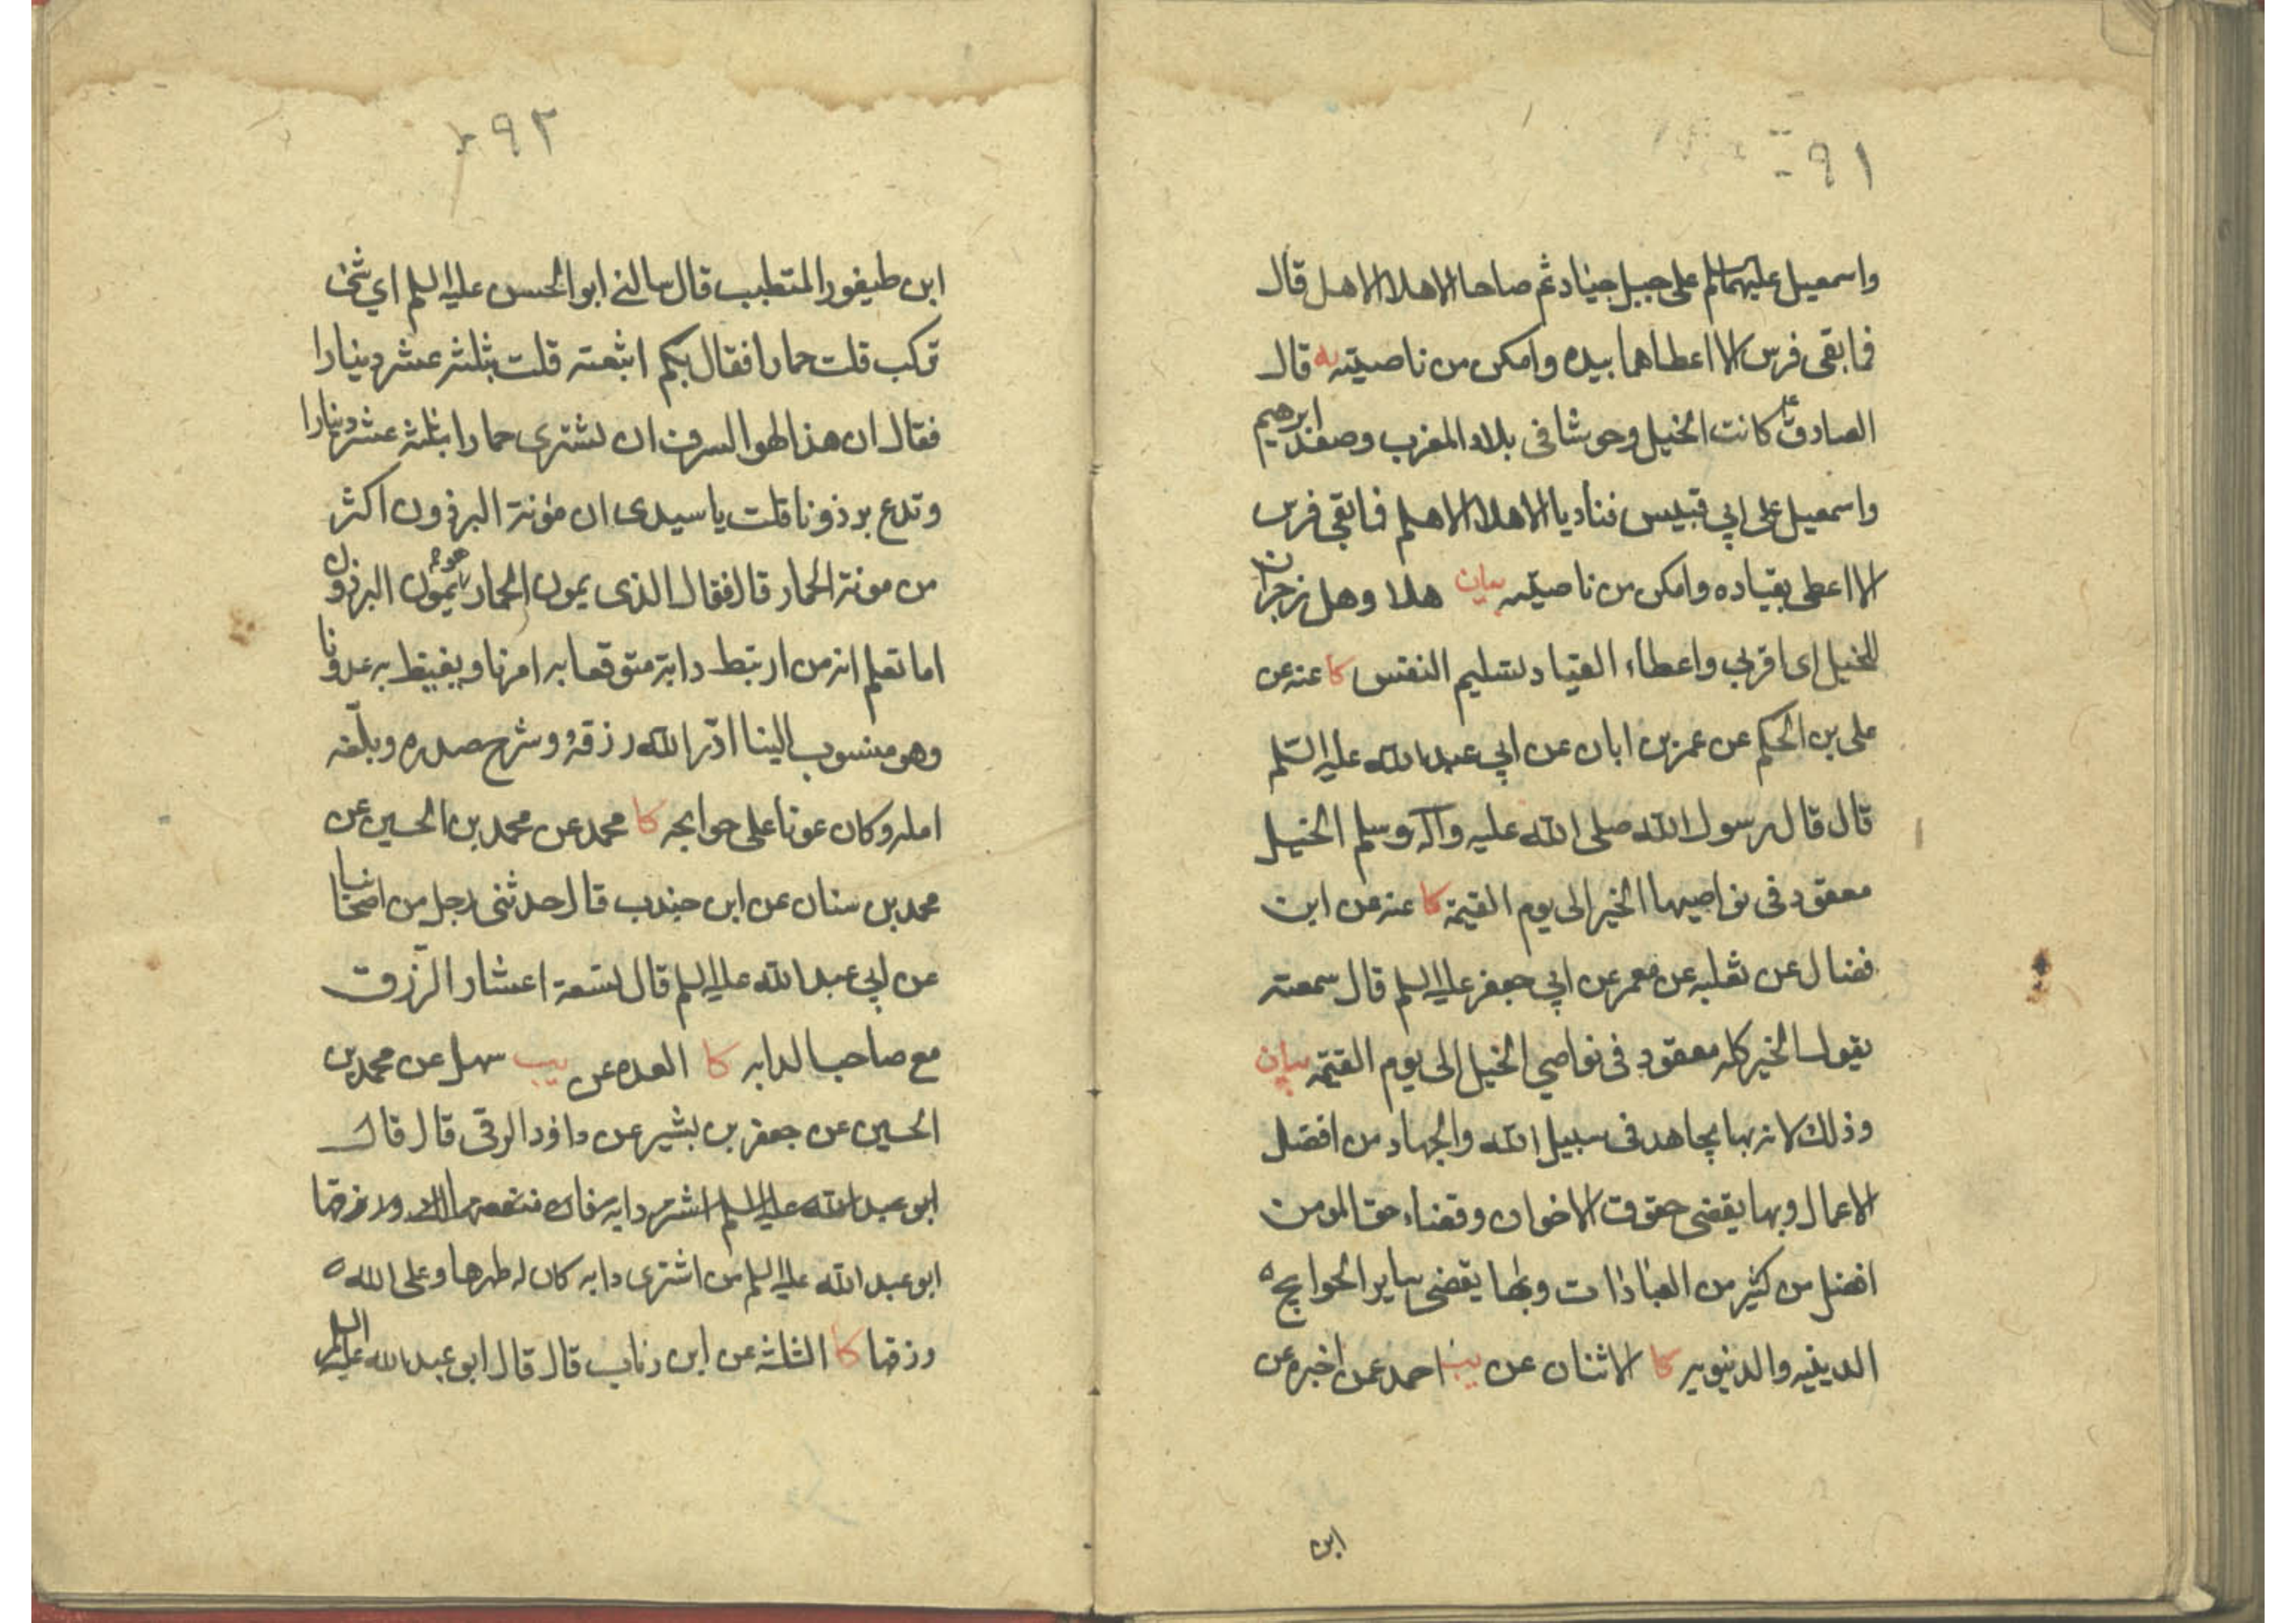 ٩١
واسمعيل عليهما السلم على جبل جياد ثم صاحا الا هلا الا هل قال
فما بقى فرس الا اعطاهما بيده وامكن من ناصيته يه قال
الصادق ع كانت الخيل وحوشا فى بلاد المغرب وصعد ابرهيم
واسمعيل على ابي قبيس فناديا الا هلا الا هلم فما بقي فرس
الا اعطى بقياده وامكن من ناصيته بيان هلا وهل زجران
للخيل اى اقربي واعطاء القياد تسليم النفس كا عنه عن
على بن الحكم عن عمر بن ابان عن ابي عبد الله عليه السّلم
قال قال رسول الله صلى الله عليه وآله وسلم الخيل
معقود فى نواصيها الخير الى يوم القيمة كا عنه عن ابن
فضال عن ثعلبه عن معمر عن ابي جعفر عليه السلم قال سمعته
يقول الخير كله معقود فى نواصي الخيل الى يوم القيمة بيان
وذلك لانه بها يجاهد فى سبيل الله والجهاد من افضل
الاعمال وبها يقضى حقوق الاخوان وقضاء حق المومن
افضل من كثير من العبادات وبها يقضى ساير الحوايج
الدينيه والدنيويه كا الاثنان عن يب احمد عمن اخبره عن
ابن
٩٢
ابن طيفور المتطبب قال سالنى ابو الحسن عليه السلم اي شئ
تركب قلت حمارا فقال بكم ابتعته قلت بثلثة عشر دينارا
فقال ان هذا لهو السرف ان تشترى حمارا بثلثة عشر دينارا
وتدع برذونا قلت يا سيدى ان مؤنة البرذون اكثر
من مونة الحمار قال فقال الذى يمون الحمار هو يمون البرذون
اما تعلم انه من ارتبط دابة متوقعا به امرنا ويغيظ به عدونا
وهو منسوب الينا ادّر الله رزقه وشرح صدره وبلّغه
امله وكان عونا على حوايجه كا محمد عن محمد بن الحسين عن
محمد بن سنان عن ابن جندب قال حدثنى رجل من اصحابنا
عن ابي عبد الله عليه السلم قال تسعة اعشار الرّزق
مع صاحب الدابه كا العده عن يب سهل عن محمد بن
الحسين عن جعفر بن بشير عن داؤد الرقى قال قال
ابو عبد الله عليه السلم اشتر دابه فان منفعتها لك ورزقها
ابو عبد الله عليه السلم من اشترى دابه كان له ظهرها وعلى الله
رزقها كا الثلثة عن ابن رئاب قال قال ابو عبد الله عليه السلم